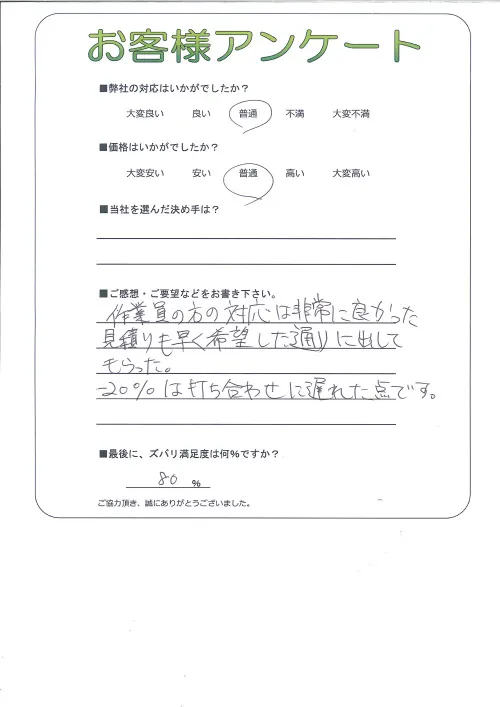 お客様アンケート
■弊社の対応はいかがでしたか？
大変良い 良い 普通 不満 大変不満
■価格はいかがでしたか？
大変安い 安い 普通 高い 大変高い
■当社を選んだ決め手は？
■ご感想・ご要望などをお書き下さい。
作業員の方の対応は非常に良かった
見積りも早く希望した通りに出して
もらった。
-20%は打ち合わせに遅れた点です。
■最後に、ズバリ満足度は何%ですか？
80 %
ご協力頂き、誠にありがとうございました。